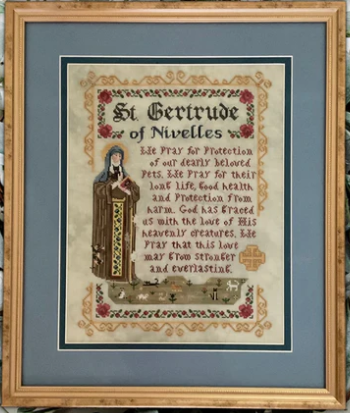 St. Gertrude
of Nivelles
We Pray for Protection
of our dearly beloved
Pets. We Pray for their
long life, Good health
and Protection from
harm. God has Graced
us with the love of His
heavenly creatures. We
Pray that this love
may Grow stronger
and everlasting.